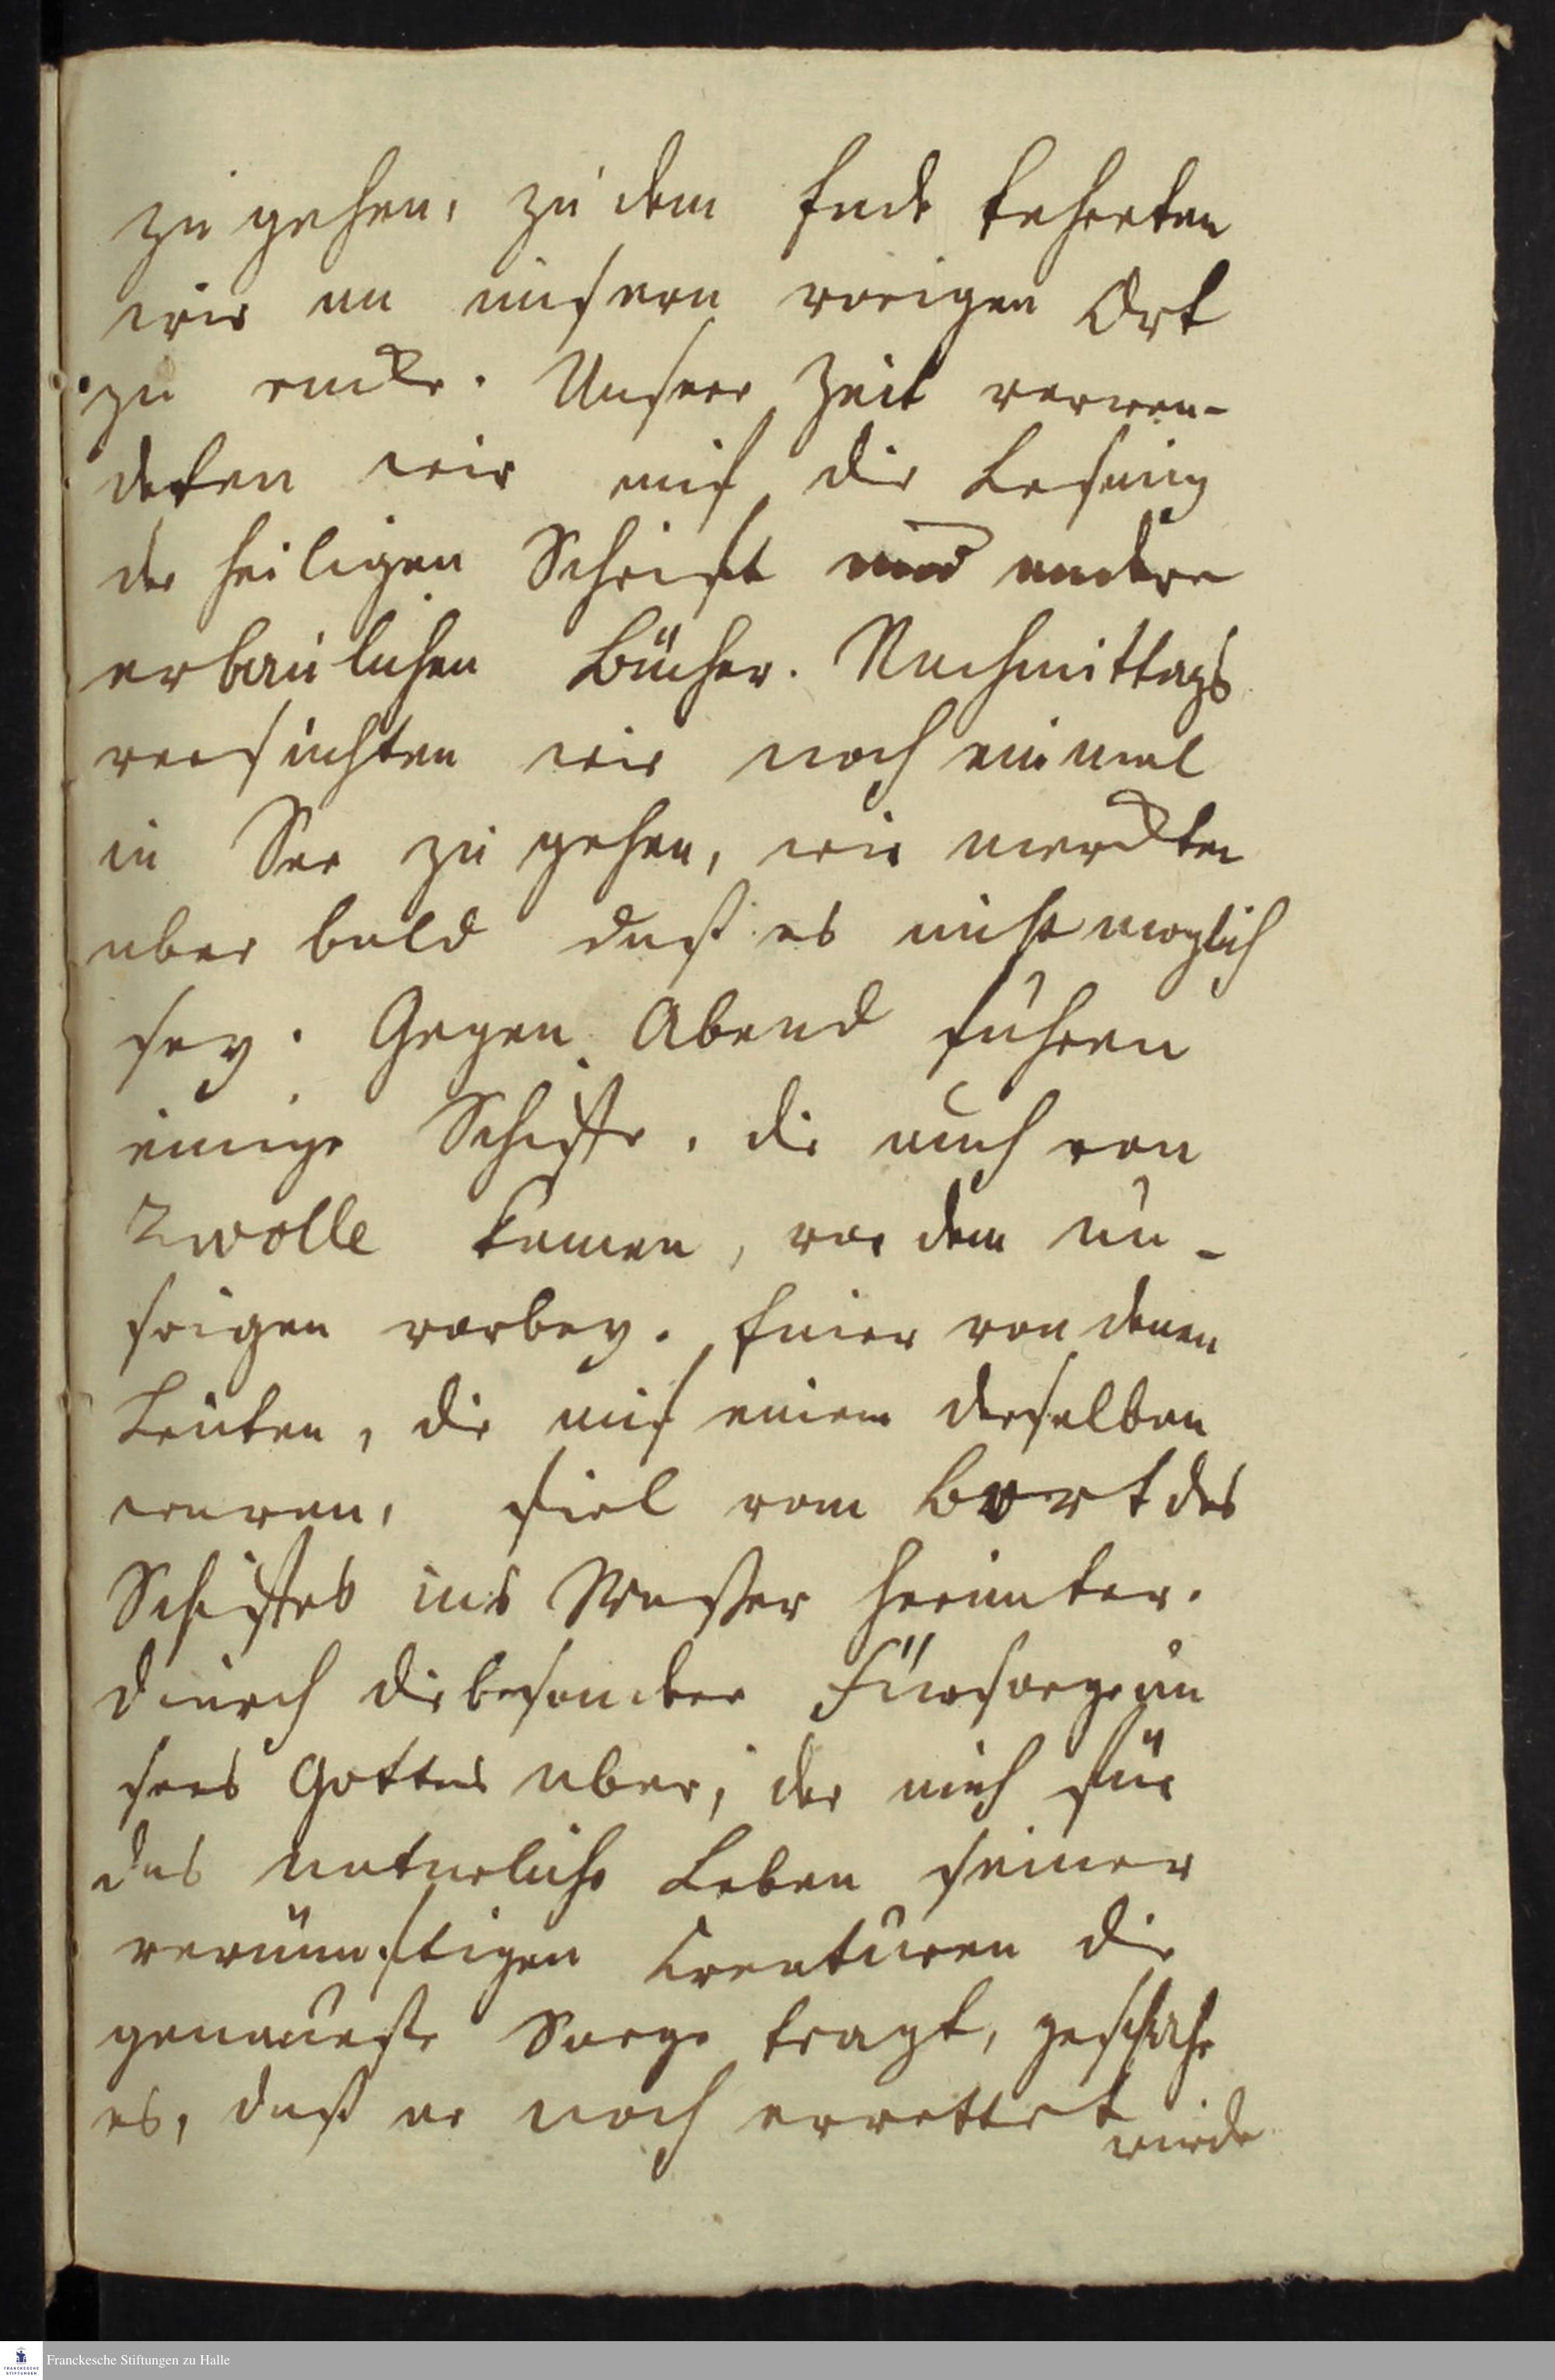 zu gehen, zu dem Ende kehreten
wir an unsern vorigen Ort
zu rucke. Unsere Zeit verwen-
deten wir auf die Lesung
der heiligen Schrift und andere
erbaulichen Bücher. Nachmittags
versuchten wir noch einmal
in See zu gehen, wir merckten
aber bald daß es nicht moglich
sey. Gegen Abend fuhren
einige Schiffe, die auch von
Zwolle kamen, vor dem un-
srigen vorbey. Einer von denen
Leuten, die auf einem derselben
waren, fiel vom Bort des
Schiffes ins Waßer herunter.
Durch die besondere Fürsorge un
sers Gottes aber, der auch für
das naturliche Leben seiner
vernünftigen Creaturen die
genaueste Sorge tragt, geschahe
es, daß er noch errettet
wurde
Franckesche Stiftungen zu Halle